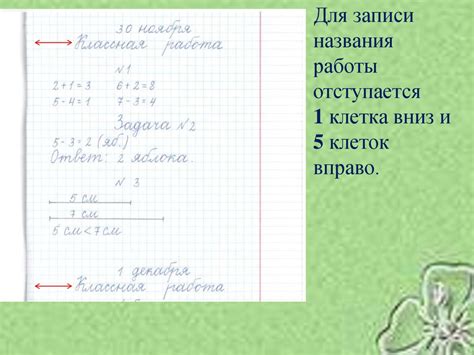 30 ноября
Классная работа
№1
2+1=3 6+2=8
5-4=1 7-3=4
Задача №2
5-3=2 (яб.)
Ответ: 2 яблока.
№ 3
5 см
7 см
5 см<7см
1 декабря
Классная работа
Для записи
названия
работы
отступается
1 клетка вниз и
5 клеток
вправо.